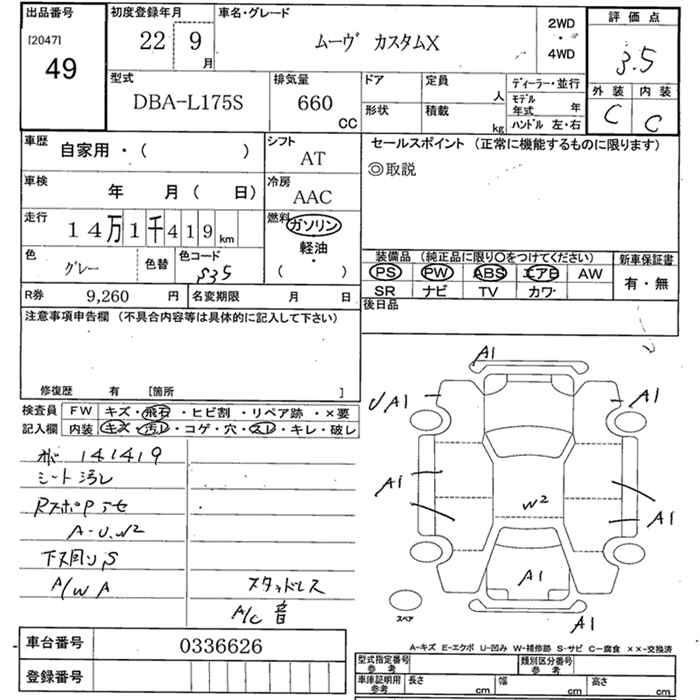 出品番号
[2047]
49
初度登録年月
22 9 月
車名・グレード
ムーヴ カスタムX
2WD
・
4WD
評価点
3.5
外装 内装
C C
型式
DBA-L175S
排気量
660 CC
ドア
形状
定員 人
積載 kg
ディーラー・並行
モデル年式 年
ハンドル 左・右
車歴
自家用・( )
シフト
AT
車検
年 月 ( 日)
冷房
AAC
走行
14万1千419km
燃料
ガソリン
・
軽油
・
( )
色
グレー
色替
色コード
S35
R券 9,260 円
名変期限 月 日
セールスポイント (正常に機能するものに限ります)
◎取説
装備品 (純正品に限り○をつけてください)
PS PW ABS エアB AW
SR ナビ TV カワ
新車保証書
有・無
後日品
注意事項申告欄 (不具合内容等は具体的に記入して下さい)
修復歴 有 [箇所 ]
検査員記入欄
FW キズ・飛石・ヒビ割・リペア跡・×要
内装 キズ・汚レ・コゲ・穴・スレ・キレ・破レ
141419
シート汚レ
A-U.W2
下回りS
A/W A
スタッドレス
A/C 音
A1
U A1
A1
A1
W2
A1
A1
A1
スペア
A-キズ E-エクボ U-凹み W-補修跡 S-サビ C-腐食 ××-交換済
車台番号 0336626
登録番号
型式指定番号 参考
類別区分番号 参考
車庫証明用 参考
長さ cm
幅 cm
高さ cm